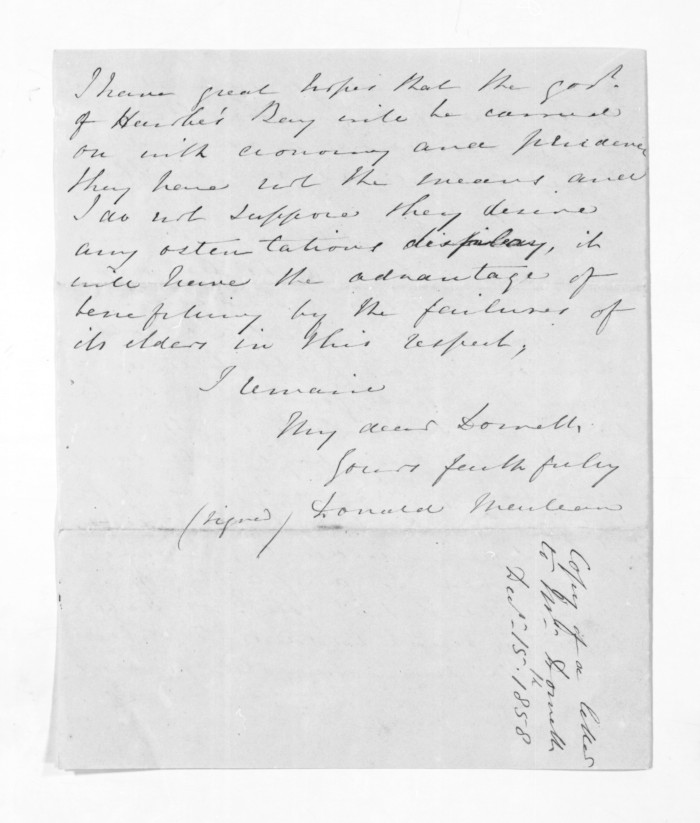 I have great hopes that the govt.
of Hawke's Bay will be carried
on with economy and prudence
they have not the means and
I do not suppose they desire
any ostentatious display, it
will have the advantage of
benefiting by the failures of
its elders in this respect,
I remain
My dear Domett.
Yours faithfully
(signed) Donald McLean
Copy of a letter
to Mr. Domett.
Decr. 15th. 1858